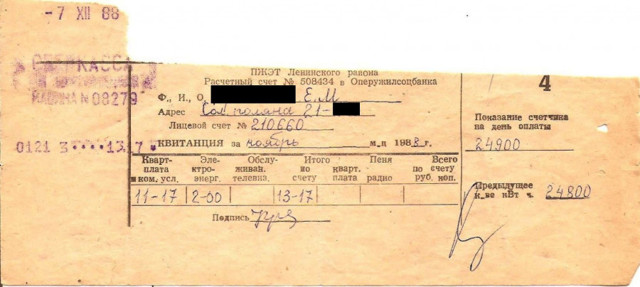 -7 XII 88
СБЕРКАССА
МАШИНА N 08279
0121 3 •••• 13,17
ПЖЭТ Ленинского района
Расчетный счет № 508434 в Оперужилсоцбанка
4
Ф., И., О. Е.М
Адрес Сол. поляна 21-
Лицевой счет № 210660
КВИТАНЦИЯ за ноябрь м-ц 1988 г.
Показание счетчика
на день оплаты
24900
Кварт-плата и ком. усл.
Электро-энерг.
Обслуживан. телевиз.
Итого по счету
Пеня кварт. плата
радио
Всего по счету руб. коп.
11-17 2-00 13-17
Предыдущее
к-во кВт ч. 24800
Подпись